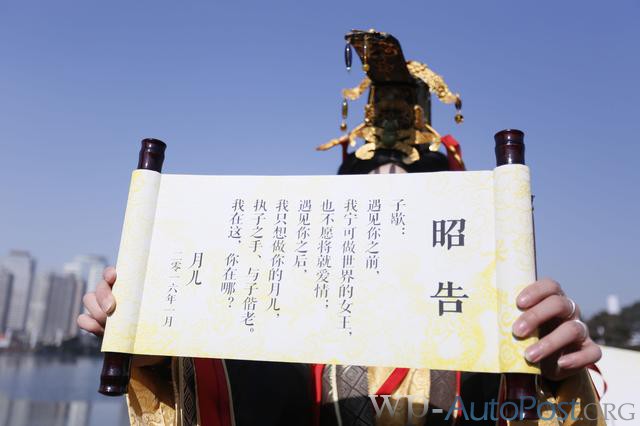 昭告
子歇：
遇见你之前，
我宁可做世界的女王，
也不愿将就爱情；
遇见你之后，
我只想做你的月儿，
执子之手、与子偕老。
我在这，你在哪？
月儿
二零一六年一月
WP-AutoPost.ORG